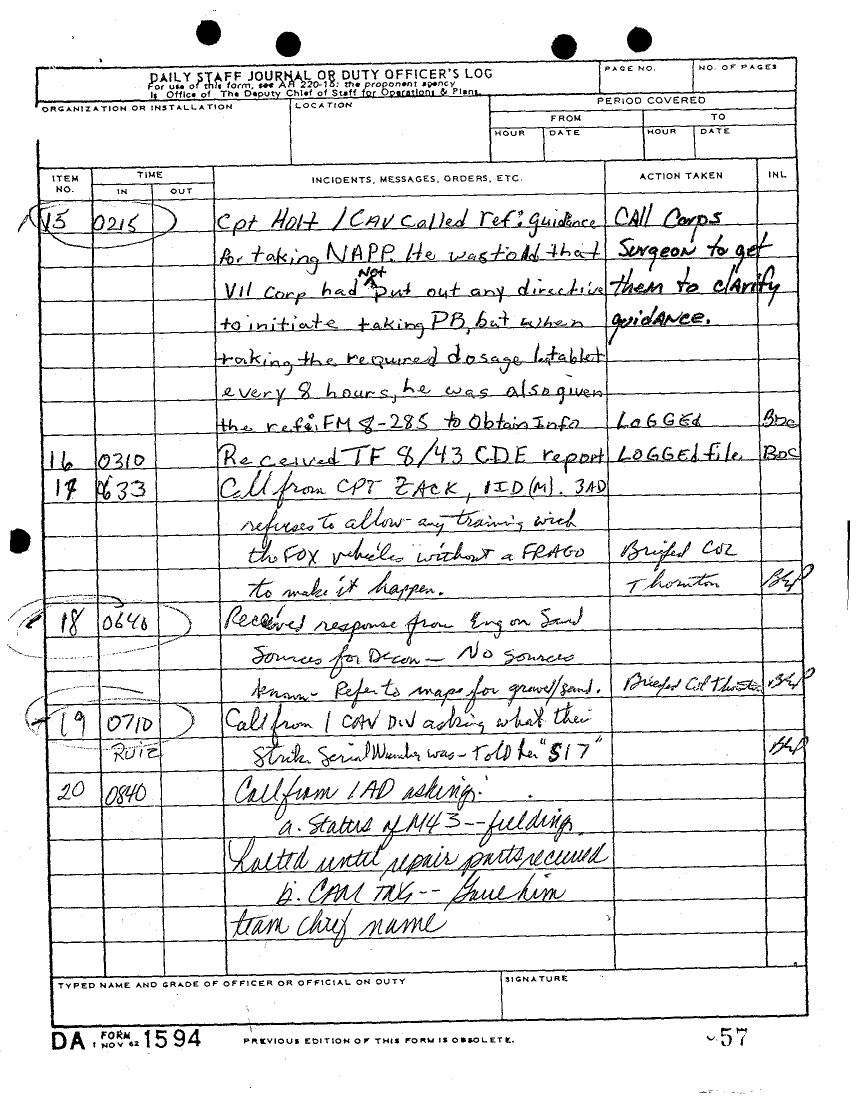 DAILY STAFF JOURNAL OR DUTY OFFICER'S LOG
For use of this form, see AR 220-15; the proponent agency
is Office of The Deputy Chief of Staff for Operations & Plans.
PAGE NO.
NO. OF PAGES
ORGANIZATION OR INSTALLATION
LOCATION
PERIOD COVERED
FROM
TO
HOUR
DATE
HOUR
DATE
ITEM NO.
TIME
IN
OUT
INCIDENTS, MESSAGES, ORDERS, ETC.
ACTION TAKEN
INL
15 0215 Cpt Holt 1CAV Called ref: guidance CAll Corps
for taking NAPP. He was told that Surgeon to get
VII Corp had Not put out any directive them to clArify
to initiate taking PB, but when guidANce.
taking the required dosage 1 tablet
every 8 hours, he was also given
the ref: FM 8-285 to Obtain Info LOGGEd BDC
16 0310 Received TF 8/43 CDE report LOGGEd file BDC
17 0633 Call from CPT ZACK, 1ID(M). 3AD
refuses to allow any training with
the FOX vehicles without a FRAGO Briefed Col
to make it happen. Thornton
18 0640 Received response from Eng on Sand
Sources for Decon - No sources
known - Refer to maps for gravel/sand. Briefed Col Thornton
19 0710 Call from 1 CAV DIV asking what their
RUIZ Strike Serial Number was - Told her "517"
20 0840 Call from 1AD asking:
a. Status of M43 -- fielding
halted until repair parts received
b. CAM TNG -- Gave him
team chief name
TYPED NAME AND GRADE OF OFFICER OR OFFICIAL ON DUTY
SIGNATURE
DA FORM 1 NOV 62 1594
PREVIOUS EDITION OF THIS FORM IS OBSOLETE.
57